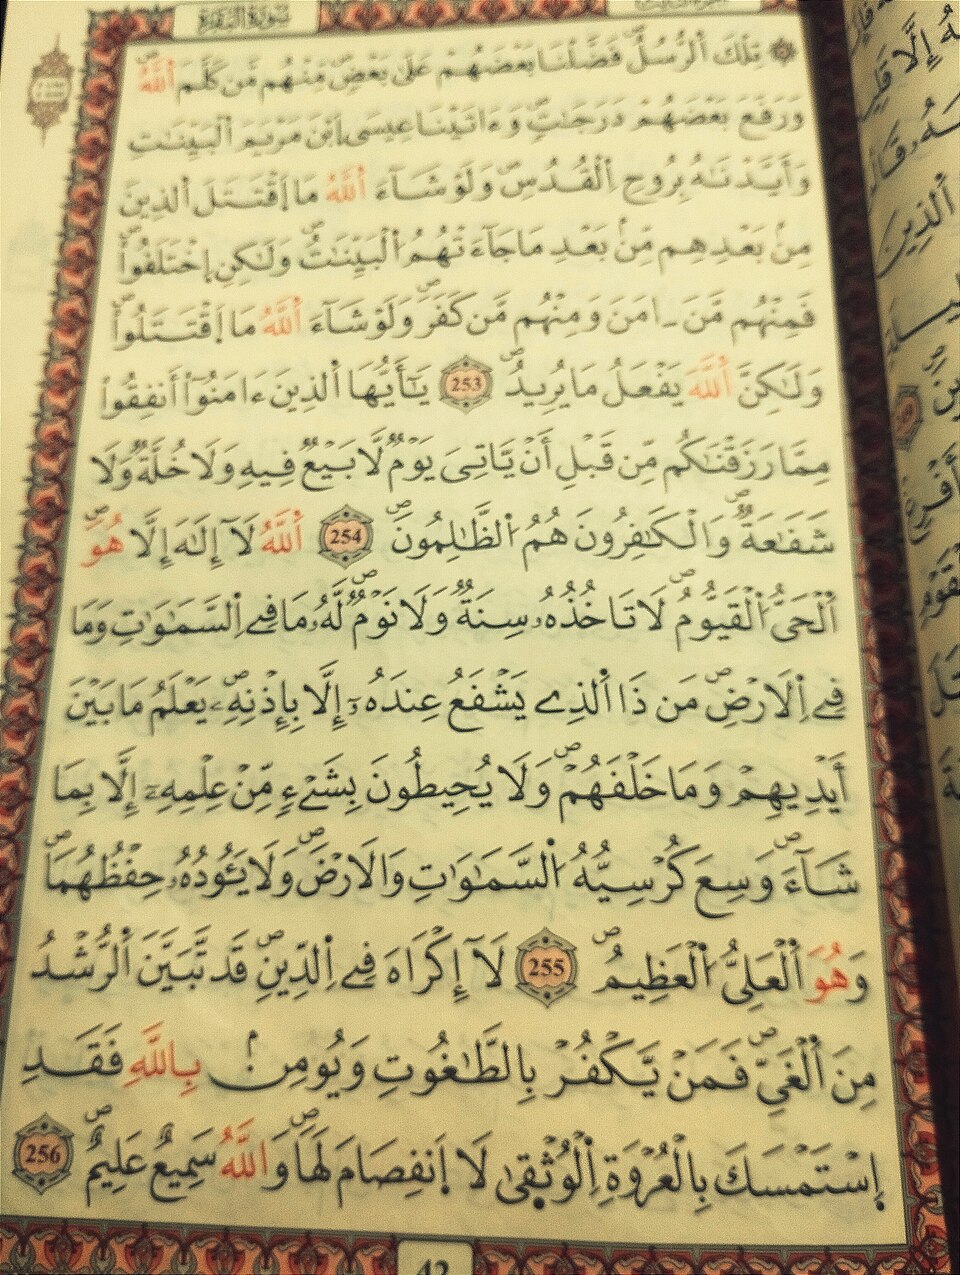 سورة البقرة
۞ تِلْكَ اَ۬لرُّسُلُ فَضَّلْنَا بَعْضَهُمْ عَلَىٰ بَعْضٖۖ مِّنْهُم مَّن كَلَّمَ اَ۬للَّهُۖ
وَرَفَعَ بَعْضَهُمْ دَرَجَٰتٖۖ وَءَاتَيْنَا عِيسَى اَ۪بْنَ مَرْيَمَ اَ۬لْبَيِّنَٰتِ
وَأَيَّدْنَٰهُ بِرُوحِ اِ۬لْقُدُسِۖ وَلَوْ شَآءَ اَ۬للَّهُ مَا اَ۪قْتَتَلَ اَ۬لذِينَ
مِنۢ بَعْدِهِم مِّنۢ بَعْدِ مَا جَآءَتْهُمُ اُ۬لْبَيِّنَٰتُۖ وَلَٰكِنِ اِ۪خْتَلَفُواْۖ
فَمِنْهُم مَّنَ اٰمَنَ وَمِنْهُم مَّن كَفَرَۖ وَلَوْ شَآءَ اَ۬للَّهُ مَا اَ۪قْتَتَلُواْۖ
وَلَٰكِنَّ اَ۬للَّهَ يَفْعَلُ مَا يُرِيدُۖ 253 يَٰٓأَيُّهَا اَ۬لذِينَ ءَامَنُوٓاْ أَنفِقُواْ
مِمَّا رَزَقْنَٰكُم مِّن قَبْلِ أَنْ يَّاتِىَ يَوْمٞ لَّا بَيْعٞ فِيهِ وَلَا خُلَّةٞ وَلَا
شَفَٰعَةٞۖ وَالْكَٰفِرُونَ هُمُ اُ۬لظَّٰلِمُونَۖ 254 اَ۬للَّهُ لَآ إِلَٰهَ إِلَّا هُوَۖ
اَ۬لْحَيُّ اُ۬لْقَيُّومُۖ لَا تَاخُذُهُۥ سِنَةٞ وَلَا نَوْمٞۖ لَّهُۥ مَا فِے اِ۬لسَّمَٰوَٰتِ وَمَا
فِے اِ۬لَارْضِۖ مَن ذَا اَ۬لذِے يَشْفَعُ عِندَهُۥٓ إِلَّا بِإِذْنِهِۦۖ يَعْلَمُ مَا بَيْنَ
أَيْدِيهِمْ وَمَا خَلْفَهُمْۖ وَلَا يُحِيطُونَ بِشَےْءٖ مِّنْ عِلْمِهِۦٓ إِلَّا بِمَا
شَآءَۖ وَسِعَ كُرْسِيُّهُ اُ۬لسَّمَٰوَٰتِ وَالَارْضَۖ وَلَا يَـُٔودُهُۥ حِفْظُهُمَاۖ
وَهُوَ اَ۬لْعَلِيُّ اُ۬لْعَظِيمُۖ 255 لَآ إِكْرَاهَ فِے اِ۬لدِّينِۖ قَد تَّبَيَّنَ اَ۬لرُّشْدُ
مِنَ اَ۬لْغَيِّۖ فَمَنْ يَّكْفُرْ بِالطَّٰغُوتِ وَيُومِنۢ بِاللَّهِ فَقَدِ
اِ۪سْتَمْسَكَ بِالْعُرْوَةِ اِ۬لْوُثْقَىٰ لَا اَ۪نفِصَامَ لَهَاۖ وَاللَّهُ سَمِيعٌ عَلِيمٌۖ 256
42